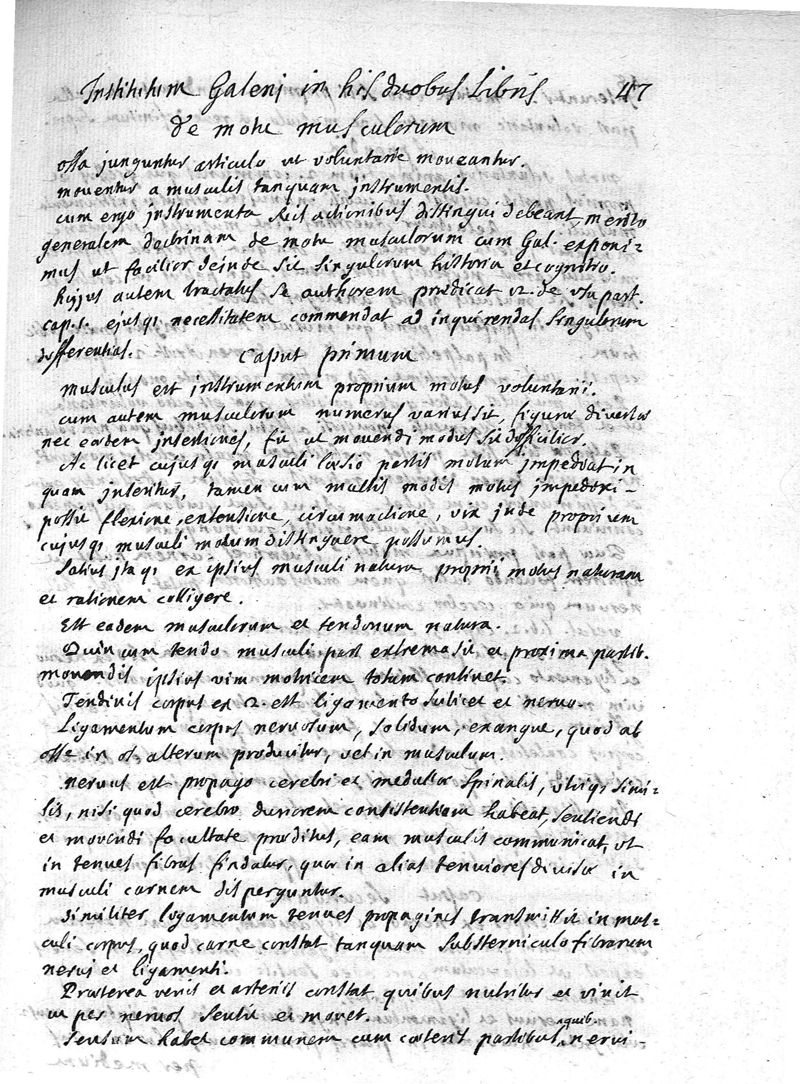 Institutum Galeni in his duobus Libris 47
de motu musculorum
ossa junguntur articulo ut voluntarie moveantur.
moventur a musculis tanquam instrumentis.
cum ergo instrumenta suis actionibus distingui debeant, merito
generalem doctrinam de motu musculorum cum Gal. exponi=
mus ut facilior deinde sit singulorum historia et cognitio.
hujus autem tractatus se authorem praedicat de usu part.
cap. ejusq; necessitatem commendat ad inquirendas singulorum
differentias. Caput primum
Musculus est instrumentum proprium motus voluntarii.
cum autem musculorum numerus varius sit, figurae diversae
nec eaedem insertiones, fit ut movendi modus sit difficilior.
Ac licet cujusq; musculi laesio partis motum impediat in
quam inseritur, tamen cum multis modis motus impediri-
possit flexione, extensione, circumactione, vix inde proprium
cujusq; musculi motum distinguere possumus.
Satius itaq; ex ipsius musculi natura proprii motus naturam
et rationem colligere.
Est eadem musculorum et tendonum natura.
Quin cum tendo musculi pars extrema sit, et proxima partib.
movendis ipsius vim motricem totum continet.
Tendinis corpus ex 2. est ligamento scilicet et nervo.
Ligamentum corpus nervosum, solidum, exangue, quod ab
osse in os alterum producitur, vel in musculum.
nervus est propago cerebri et medullae spinalis, utriq; simi=
lis, nisi quod cerebro duriorem consistentiam habeat, sentiendi
et movendi facultate praeditus, eam musculis communicat, ut
in tenues fibras findatur, quae in alias tenuiores divisae in
musculi carnem disperguntur.
Similiter ligamentum tenues propagines transmittit in mus=
culi corpus, quod carne constat tanquam substerniculo fibrarum
nervi et ligamenti.
Praeterea venis et arteriis constat quibus nutritur et vivit
ut per nervos sentit et movet.
Sensum habet communem cum caeteris partibus, quib. nervi-